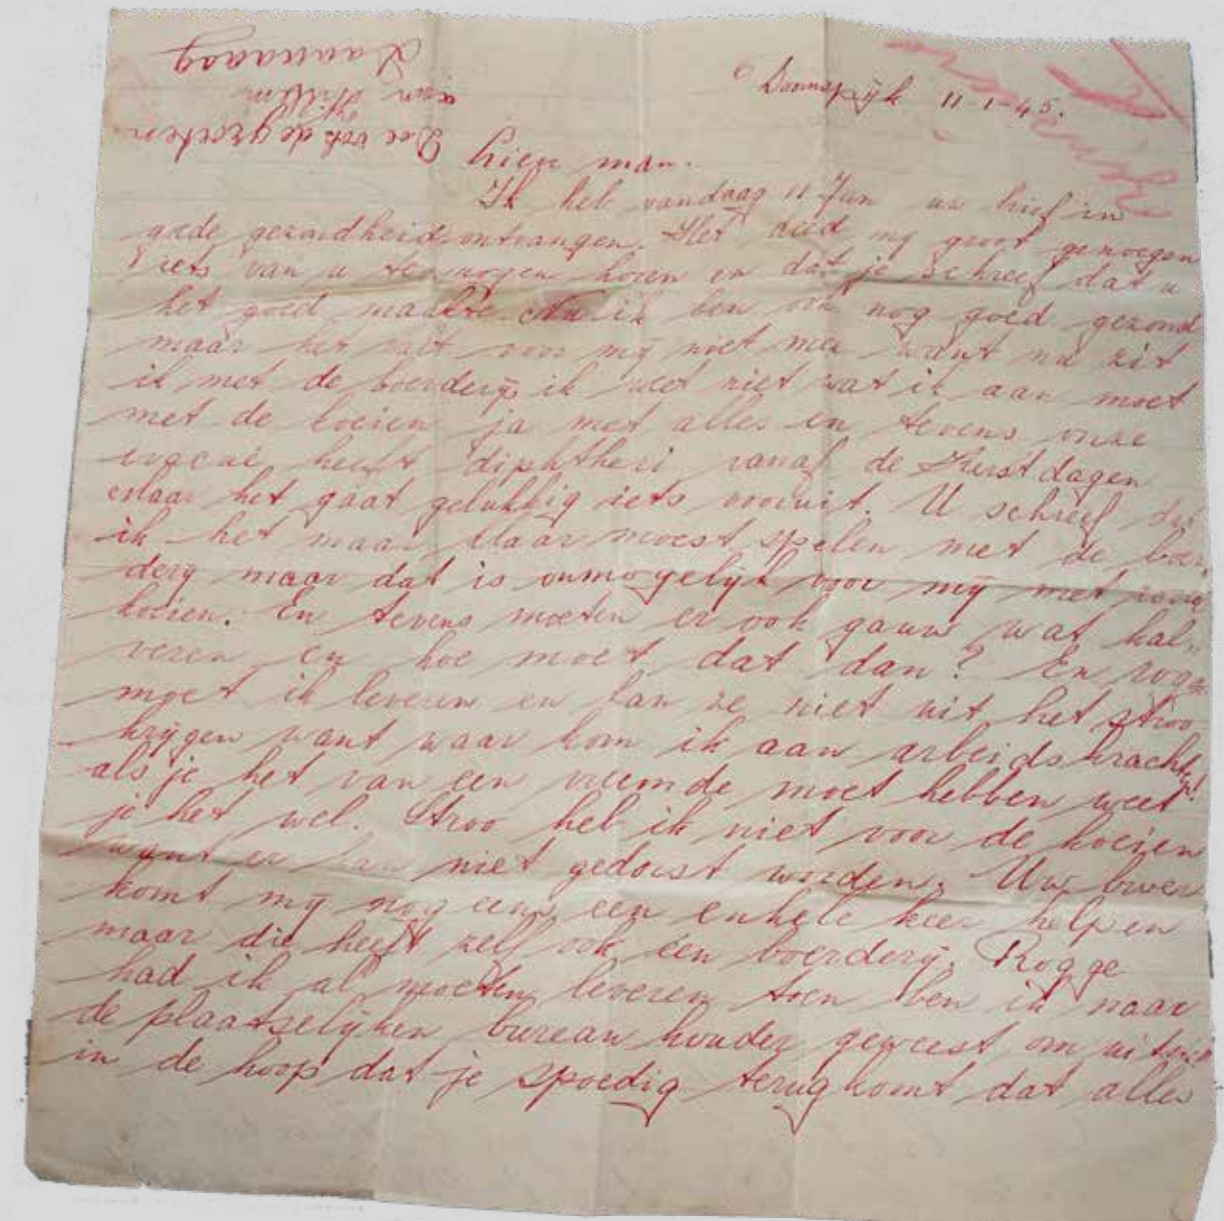 Doornspijk 11-1-45.
Lieve man.
Ik heb vandaag 11 Jan uw brief in
goede gezondheid ontvangen. Het deed mij groot genoegen
iets van u te mogen horen en dat je schreef dat u
het goed maakte. Nu ik ben ook nog goed gezond
maar het valt voor mij niet mee want nu zit
ik met de boerderij ik weet niet wat ik aan moet
met de koeien ja met alles en tevens onze
evacué heeft diphtheri vanaf de Kerstdagen
maar het gaat gelukkig iets vooruit. U schreef dat
ik het maar klaar moest spelen met de boer
derij maar dat is onmogelijk voor mij met
koeien. En tevens moeten er ook gauw wat kal
veren en hoe moet dat dan? En rogge
moet ik leveren en kan ze niet uit het stroo
krijgen want waar kom ik aan arbeidskrachten!
als je het van een vreemde moet hebben weet
je het wel. Stroo heb ik niet voor de koeien
want er kan niet gedorst worden. Uw broer
komt mij nog eens een enkele keer helpen
maar die heeft zelf ook een boerderij. Rogge
had ik al moeten leveren toen ben ik naar
de plaatselijken bureau houder geweest om uitstel
in de hoop dat je spoedig terug komt dat alles
Doe ook de groeten
aan Willem